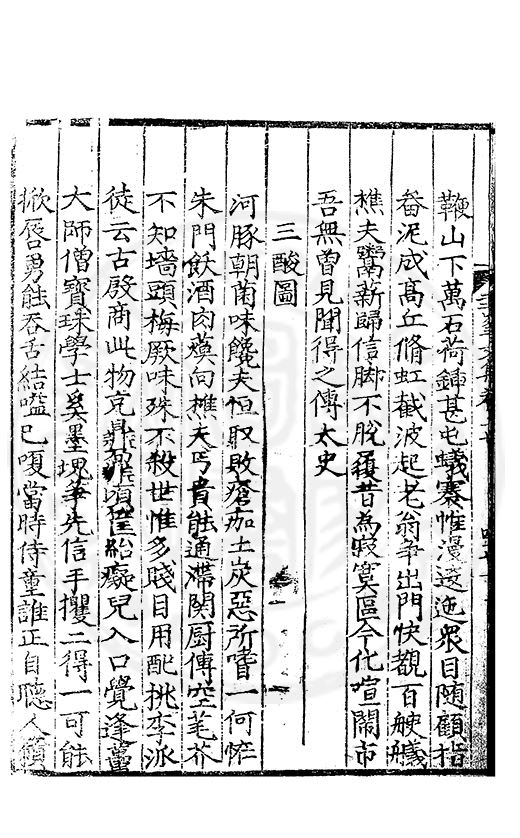 鞭山下萬石荷鍤甚屯蟻褰帷漫逶迤衆目随顧指
畚泥成高丘脩虹截波起老翁争出門快覩百艘艤
樵夫鬻薪歸信脚不脫屨昔為寂寞區今化喧鬧市
吾無曾見聞得之傳太史
三酸圖
河豚朝菌味饞夫恒取敗瘡痂土炭惡所嗜一何恠
朱門飫酒肉蔑向樵夫丐貴能通滯関厨傳空苇芥
不知墻頭梅厥味殊不殺世惟多賤目用配桃李派
徒云古殷商此物克鼎鼐頃筐紿癡兒入口覺逢蠆
大師僧寶珠學士奚墨塊争先信手攫二得一可能
掀唇勇能吞舌結嗌已嗄當時侍童誰正自聽人